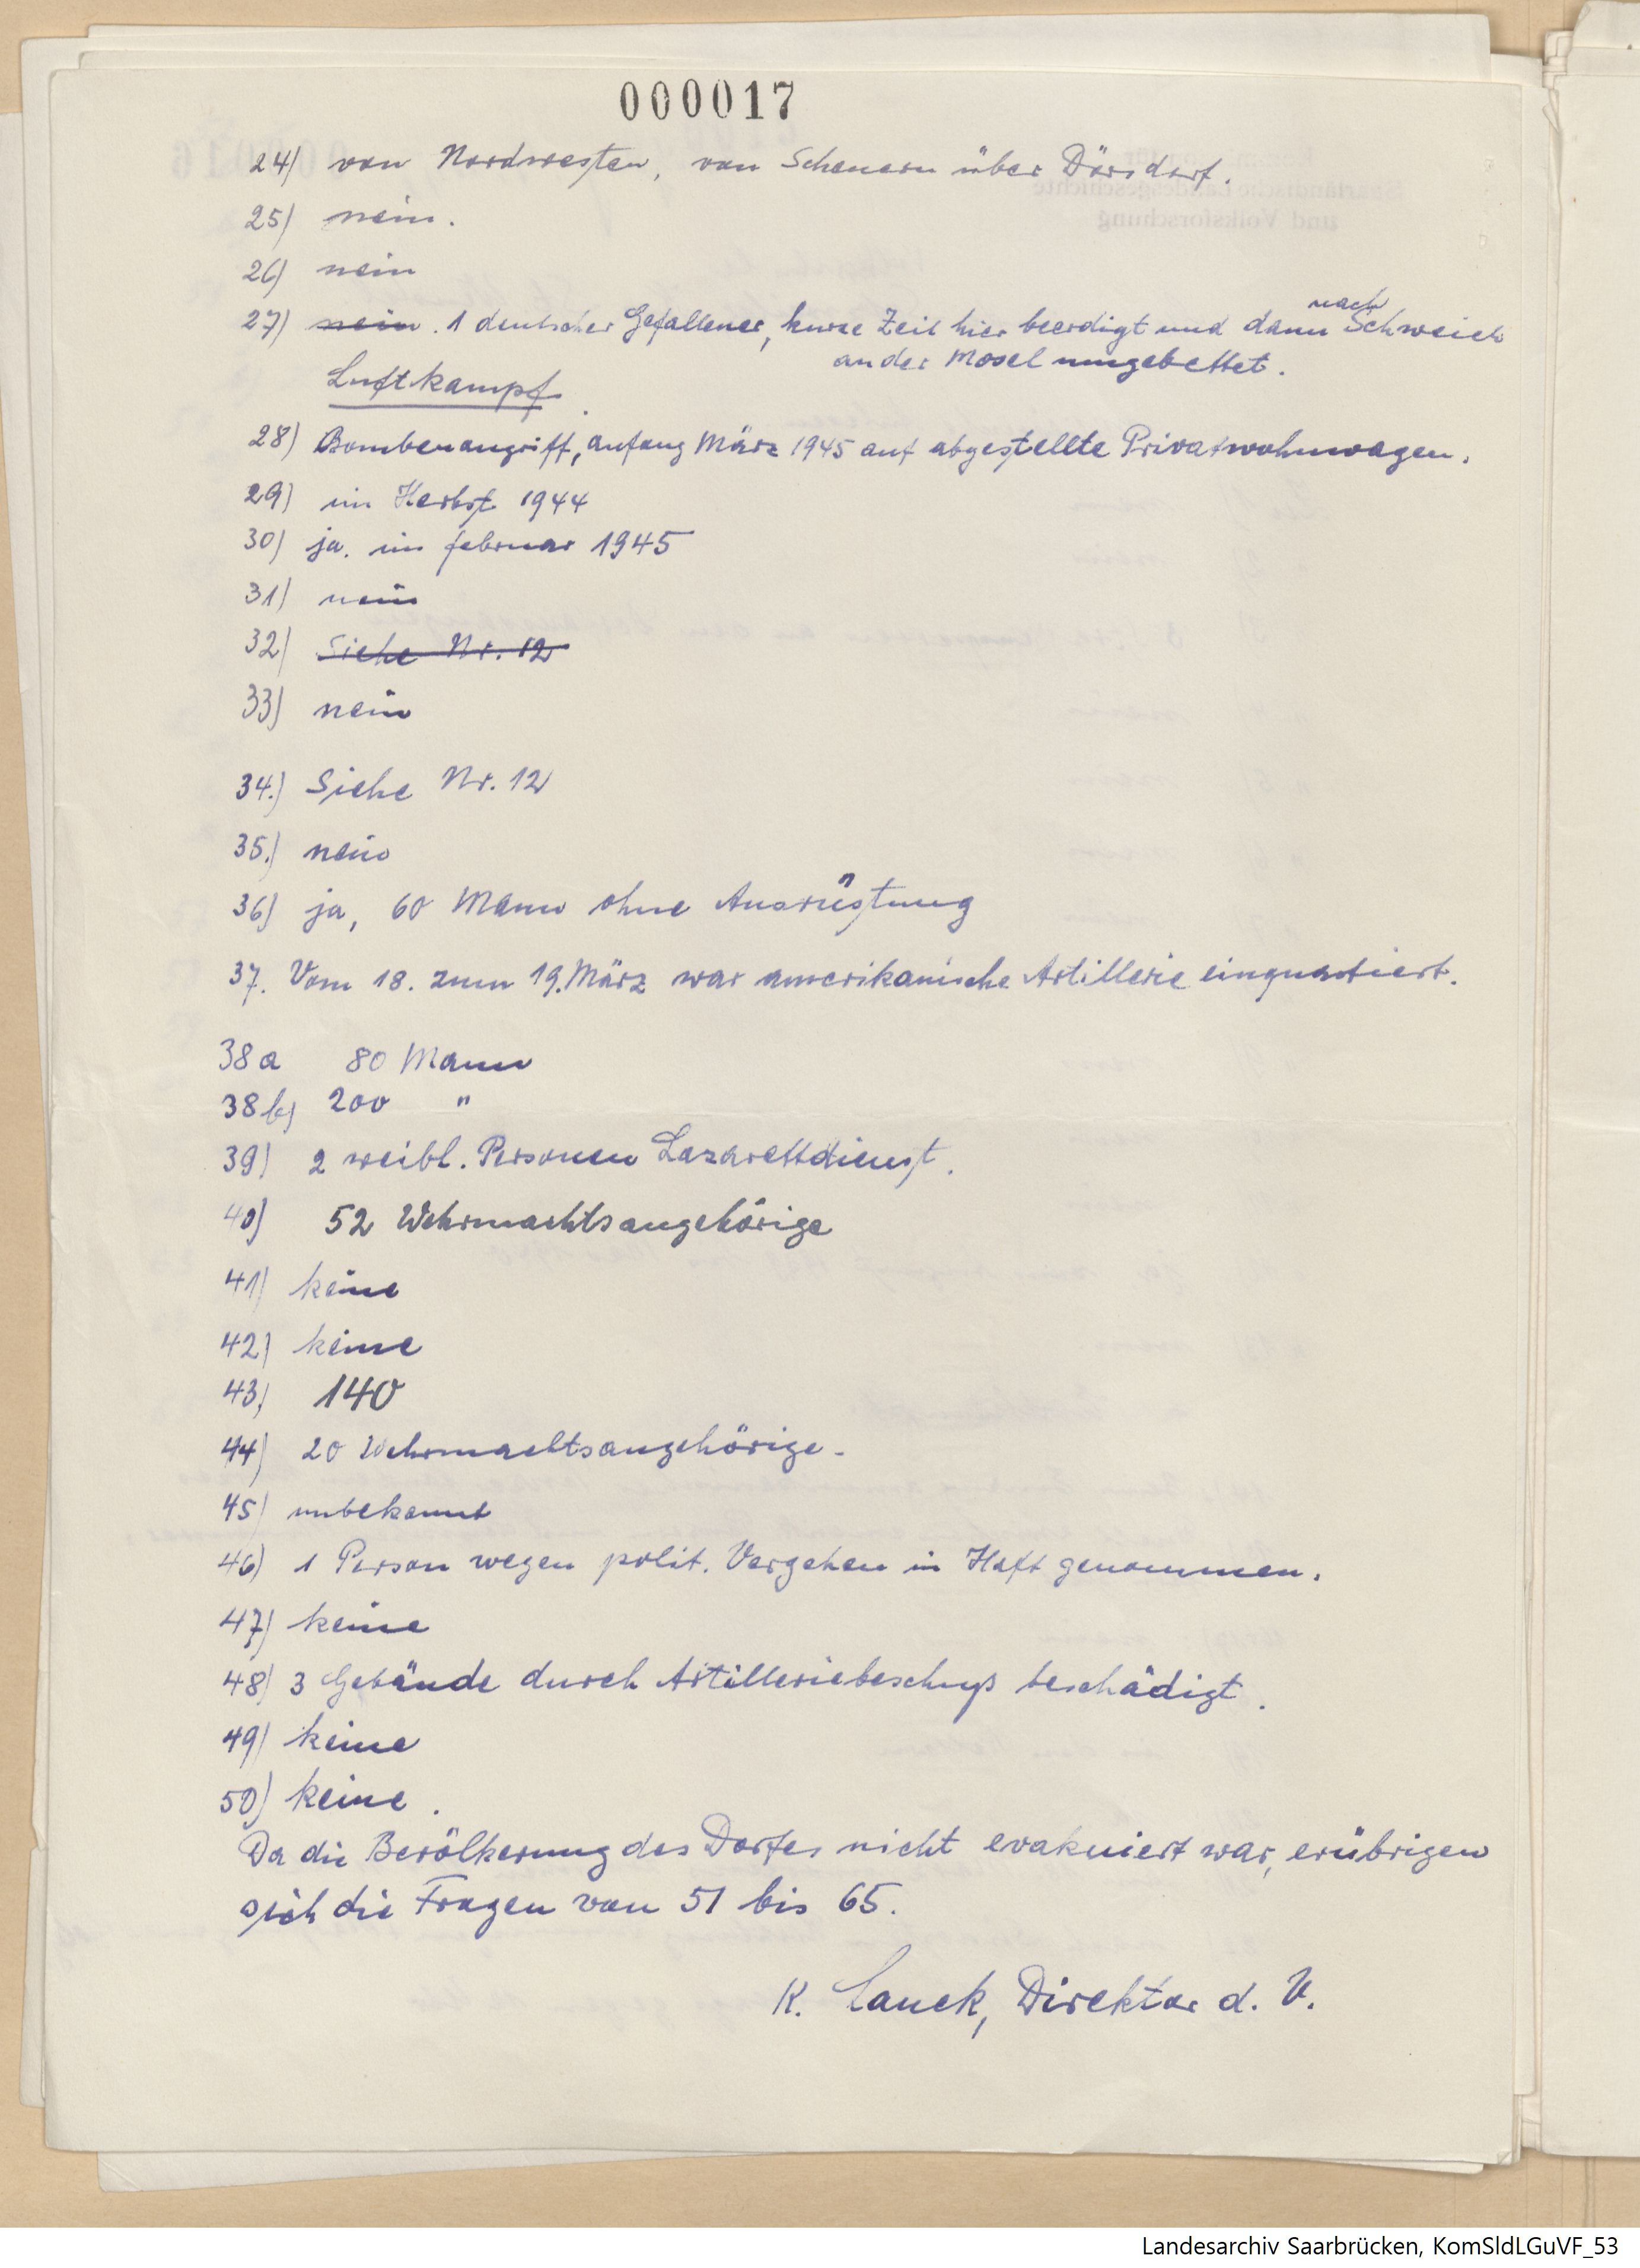 000017
24) von Nordwesten, von Scheuern über Dörsdorf.
25) nein.
26) nein
27) nein. 1 deutscher Gefallener, kurze Zeit hier beerdigt und dann nach Schweich
an der Mosel umgebettet.
Luftkampf.
28) Bombenangriff, anfang März 1945 auf abgestellte Privatwohnwagen.
29) im Herbst 1944
30) ja. im februar 1945
31) nein
32) Siehe Nr. 12
33) nein
34.) Siehe Nr. 12
35.) nein
36) ja, 60 Mann ohne Ausrüstung
37. Vom 18. zum 19. März war amerikanische Artillerie einquartiert.
38a 80 Mann
38b) 200 "
39) 2 weibl. Personen Lazarettdienst.
40) 52 Wehrmachtsangehörige
41) keine
42) keine
43) 140
44) 20 Wehrmachtsangehörige.
45) unbekannt
46) 1 Person wegen polit. Vergehen in Haft genommen.
47) keine
48) 3 Gebäude durch Artilleriebeschuß beschädigt.
49) keine
50) keine.
Da die Bevölkerung des Dorfes nicht evakuiert war, erübrigen
sich die Fragen von 51 bis 65.
K. Lauck, Direktor d. V.
Landesarchiv Saarbrücken, KomSldLGuVF_53